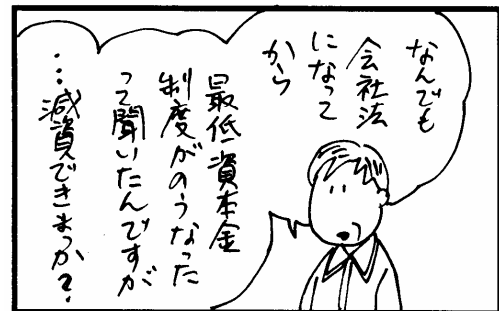 なんでも
会社法
になって
から
最低資本金
制度がのうなった
って聞いたんですが
…減資できまっか?